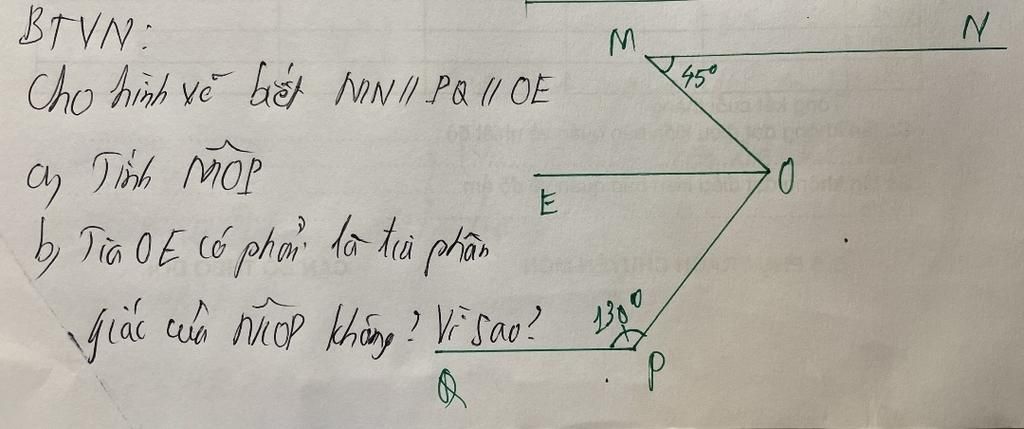 BTVN:
Cho hình vẽ biết MN // PQ // OE
a) Tính MOP
b) Tia OE có phải là tia phân
giác của MOP không? Vì sao?
M
N
45°
O
E
130°
Q
P